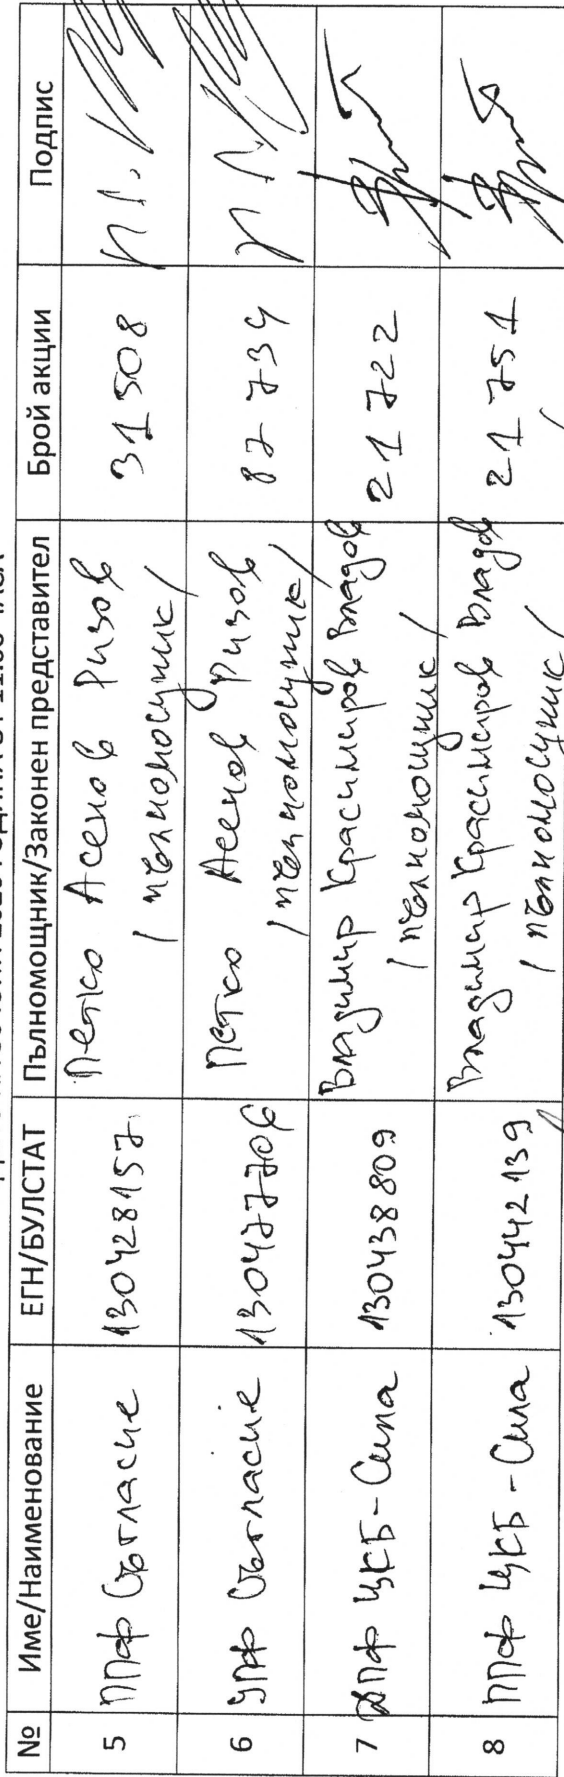 № Име/Наименование ЕГН/БУЛСТАТ Пълномощник/Законен представител Брой акции Подпис
5 ППФ Съгласие 130428157 Петко Асенов Ризов 31 508
/ пълномощник/
6 УПФ Съгласие 130477706 Петко Асенов Ризов 87 734
/ пълномощник/
7 ДПФ ЦКБ-Сила 130438809 Владимир Красимиров Владов 21 722
/ пълномощник/
8 ППФ ЦКБ-Сила 130442139 Владимир Красимиров Владов 21 751
/ пълномощник/